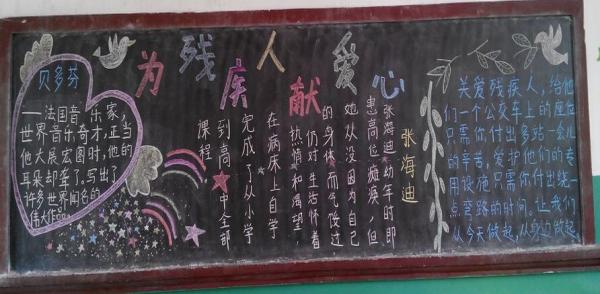 为残疾人献爱心
贝多芬
——法国音乐家,
世界音乐奇才,当
他大展宏图时,正他的
耳朵却聋了,写出了
许多世界闻名的
伟大作品。
张海迪
张海迪,幼年时即
患高位瘫痪,但
她从没因为自己
的身体而气馁过
仍对生活怀着
热情和渴望,
在病床上自学
完成了从小学
到高中全部
课程.
关爱残疾人,给他
们一个公交车上的座位
只需你付出多站一会儿
的辛苦,爱护他们的专
用设施只需你付出绕一
点弯路的时间。让我们
从今天做起,从身边做起。